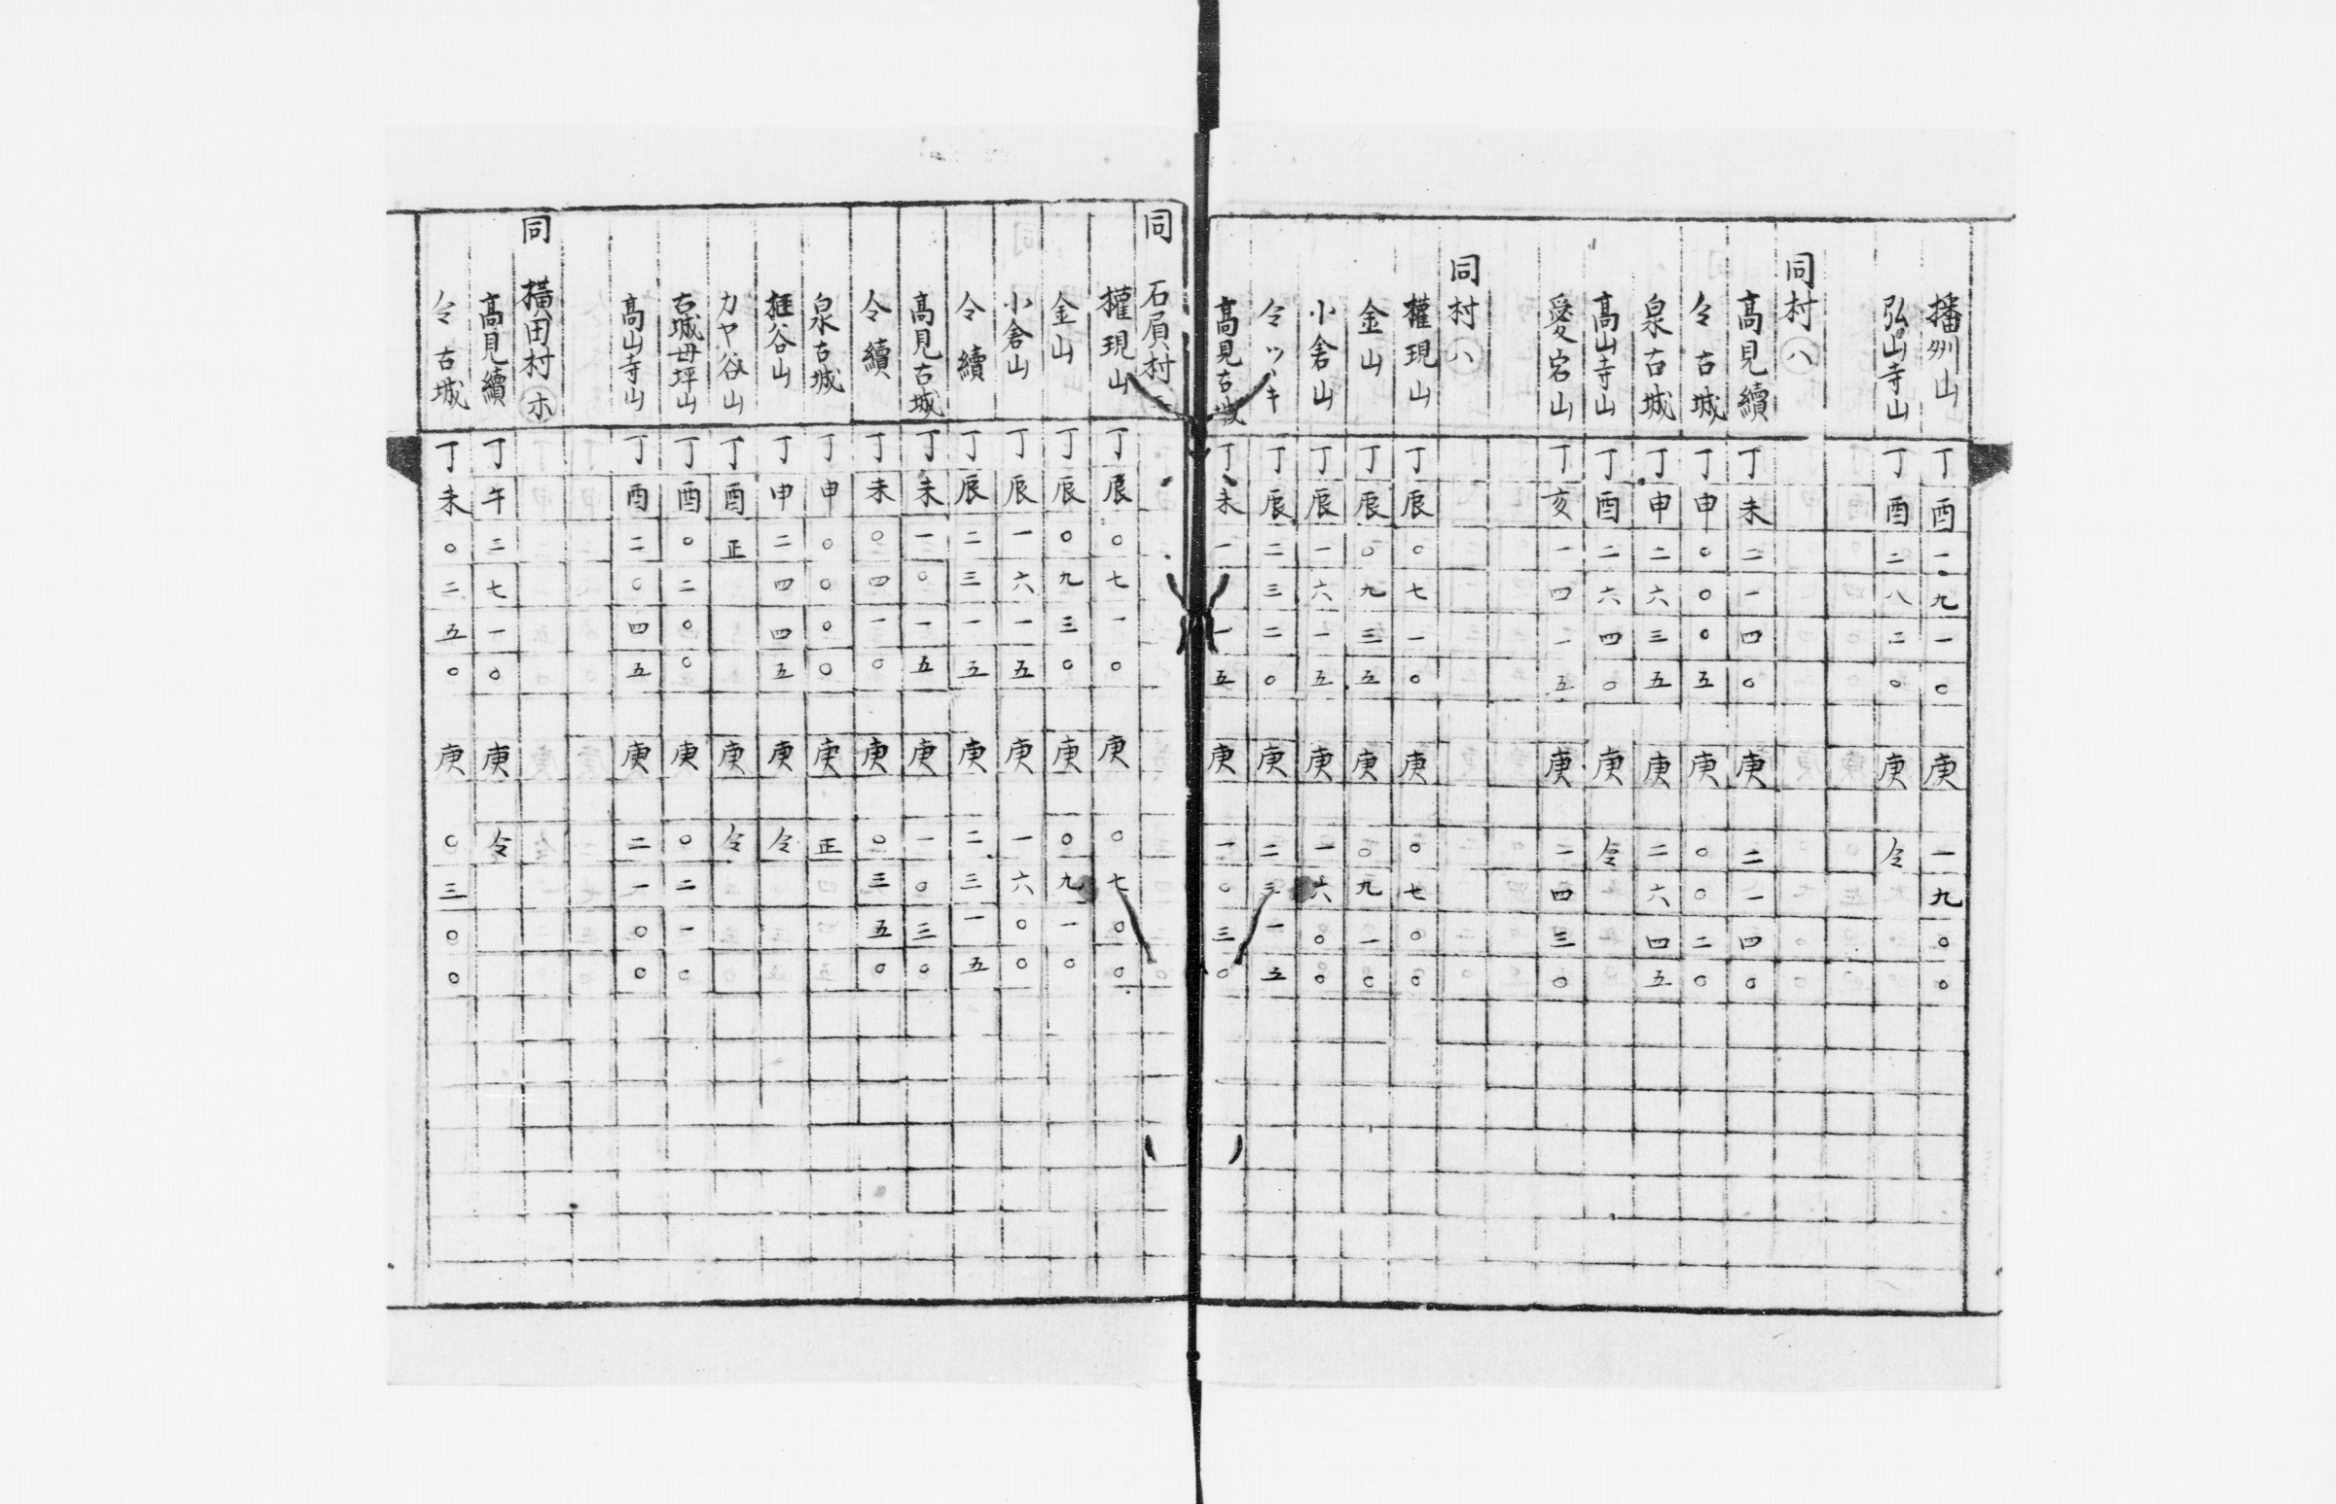 播刕山 丁酉一九一〇 庚 一九〇〇
弘山寺山 丁酉二八二〇 庚 仝
同村 ㊂八
髙見續 丁未二一四〇 庚 二一四〇
仝古城 丁申〇〇〇五 庚 〇〇二〇
泉古城 丁申二六三五 庚 二六四五
髙山寺山 丁酉二六四〇 庚 仝
愛宕山 丁亥一四一五 庚 一四三〇
同村 ハ
權現山 丁辰〇七一〇 庚 〇七〇〇
金山 丁辰〇九三五 庚 〇九一〇
小倉山 丁辰一六一五 庚 一六〇〇
仝ツヾキ 丁辰二三二〇 庚 二三一五
髙見古城 丁未一 一五 庚 一〇三〇
同 石屓村
權現山 丁辰〇七一〇 庚 〇七〇〇
金山 丁辰〇九三〇 庚 〇九一〇
小倉山 丁辰一六一五 庚 一六〇〇
仝續 丁辰二三一五 庚 二三一五
髙見古城 丁未一〇一五 庚 一〇三〇
仝續 丁未〇四一〇 庚 〇三五〇
泉古城 丁申〇〇〇〇 庚 正
谷山 丁申二四四五 庚 仝
カヤ谷山 丁酉正 庚 仝
古城母坪山 丁酉〇二〇〇 庚 〇二一〇
髙山寺山 丁酉二〇四五 庚 二一〇〇
同 橫田村 ホ
髙見續 丁午二七一〇 庚 仝
仝古城 丁未〇二五〇 庚 〇三〇〇